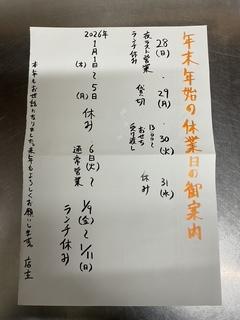 年末年始の休業日の御案内
28(日) 夜ラスト営業 ランチ休み
29(月) 貸切
30(火) 13:00〜 おせち 受け渡し
31(水) 休み
2026年
1月1日(木)〜5日(月) 休み
6日(火)〜 通常営業
1/9(金)〜1/11(日) ランチ休み
本年もお世話になりました。来年もよろしくお願いします。 店主